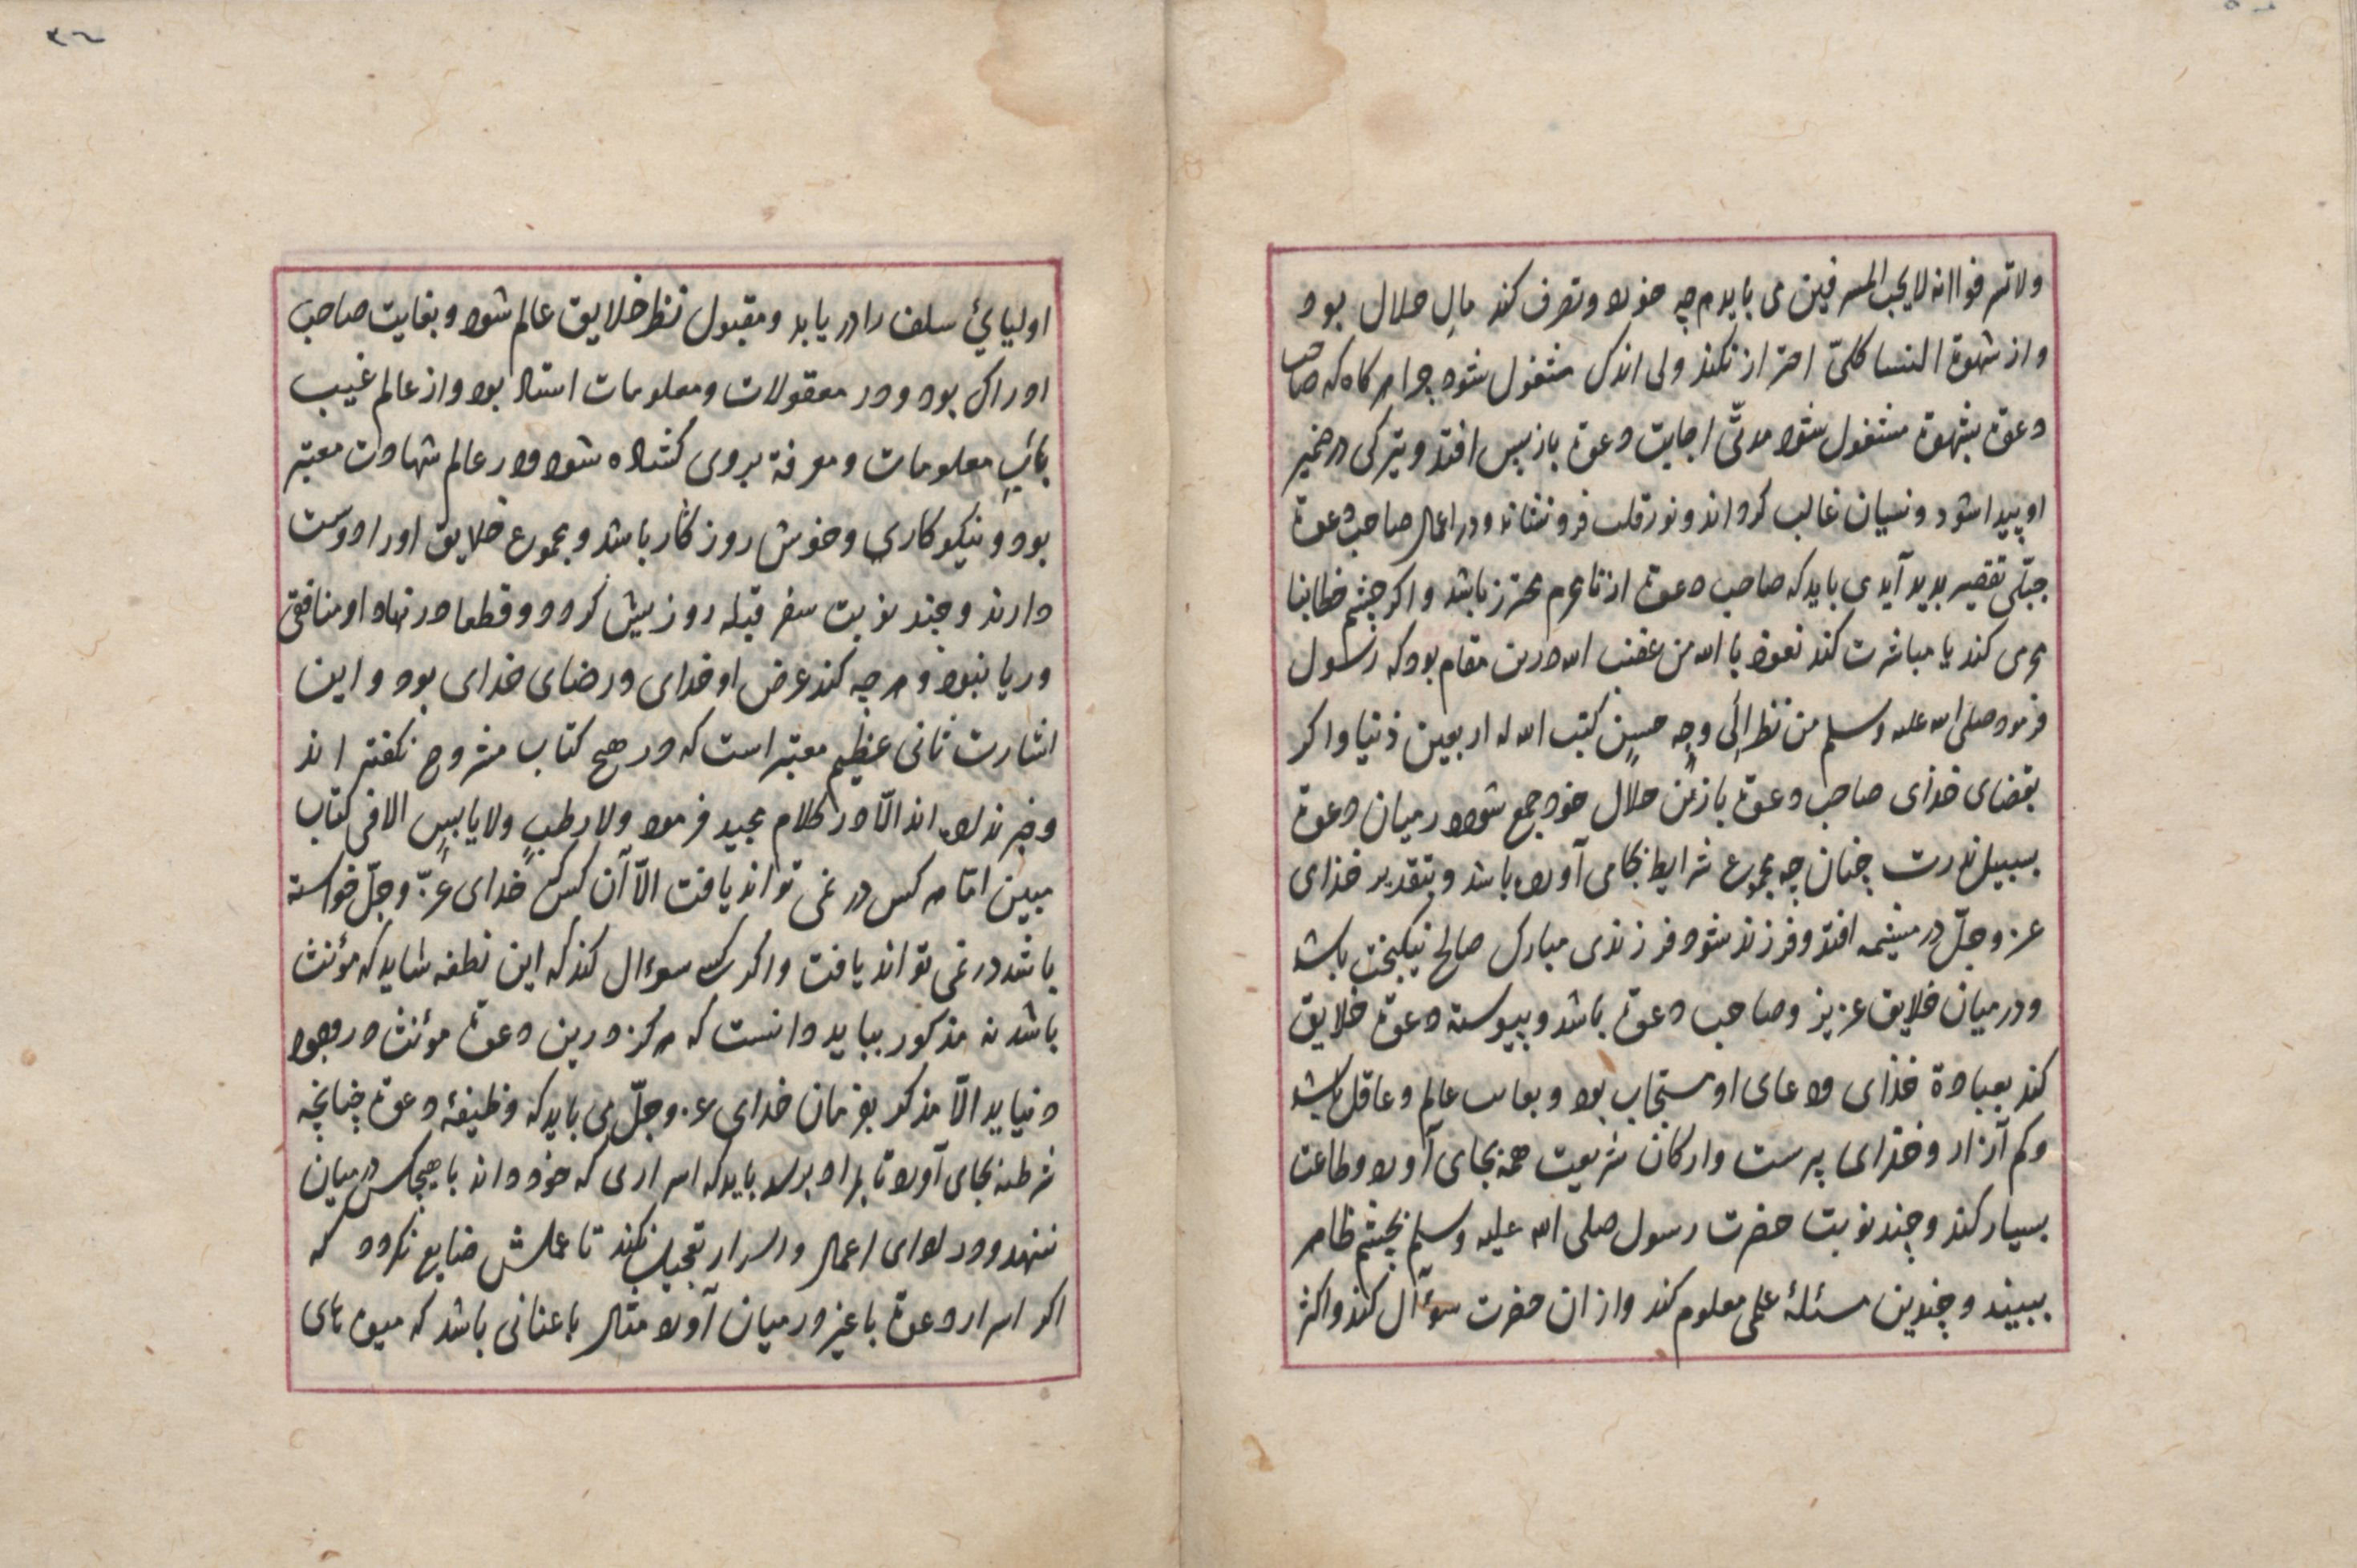 ولا تسرفوا انه لا یحب المسرفین می باید هرچه خورد و تصرف کند مالِ حلال بود
و از شهوة النسا کلیّ احتراز نکند ولی اندک مشغول شود چرا هرکاه که صاحب
دعوة بشهوة مشغول شود مدتّی اجابت دعوة بازپس افتد و تیرکی در ضمیر
او پیدا شود و نسیان غالب کرداند و نور قلب فرونشاند و در اعمال صاحب دعوة
جبلّی تقصیر پدید آید می باید که صاحب دعوة از نامحرم محترز باشد و اکر چشم خطا بنا
محرمی کند یا مباشرت کند نعوذ باالله من غضب الله درین مقام بود که رسول
فرمود صلی الله علیه وسلم من نظر اِلَی وجهٍ حسینٍ کتب الله له اربعین ذنبا و اکر
بقضای خدای صاحب دعوة بازنِ حلالِ خود جمع شود در میان دعوة
بسبیل ندرت چنان چه بمجموع شرایط بجای آورده باشد و بتقدیر خدای
عز وجلّ در مشیمه افتد و فرزند شود فرزندی مبارک صالح نیکبخت باشد
و در میان خلایق عزیز و صاحب دعوة باشد و پیوسته دعوة خلایق
کند بعبادة خدای و دعای او مستجاب بود و بغایت عالم و عاقل باشد
و کم آزار و خدای پرست و ارکان شریعت همه بجای آورد و طاعت
بسیار کند و چند نوبت حضرت رسول صلی الله علیه وسلم بچشم ظاهر
ببیند و چندین مسئلهٔ علمی معلوم کند و از ان حضرت سوءآل کند و اکثر
٣٦
اولیایئ سلف را دریابد و مقبول نظر خلایق عالم شود و بغایت صاحب
ادراک بود و در معقولات و معلومات استاد بود و از عالم غیب
بابِ معلومات و معرفة بروی کشاده شود و در عالم شهادت معتبر
بود و نیکو کاری و خوش روزکار باشد و بمجموع خلایق اورا دوست
دارند و چند نوبت سفر قبله روزیش کردد و قطعا در نهاد او منافقی
و ریا نبود و هرچه کند غرض او خدای و رضای خدای بود و این
اشارت ثانی عظیم معتبر است که در هیچ کتاب مشروح نکفته اند
و خبر نداده اند الّا در کلام مجید فرمود ولا رطبٍ ولا یابسٍ الا فی کتاب
مبین امّا هرکس در نمی تواند یافت الّا آن کس که خدای عزّ وجلّ خواسته
باشد در نمی تواند یافت و اکر کسی سوءال کند که این نطفه شاید که مؤنث
باشد نه مذکور بباید دانست که هرکز درین دعوة موئنث در وجود
نیاید الّا مذکر بفرمان خدای عز وجلّ می باید که وظیفهٔ دعوة چنانچه
شرطند بجای آورد تا بمراد برسد باید که اسراری که خود داند با هیچکس در میان
ننهد و در ادای اعمال و اسرار تعجیل نکند تا عملش ضایع نکردد که
اکر اسرار دعوة با غیر در میان آورد مثال باغبانی باشد که میوه های